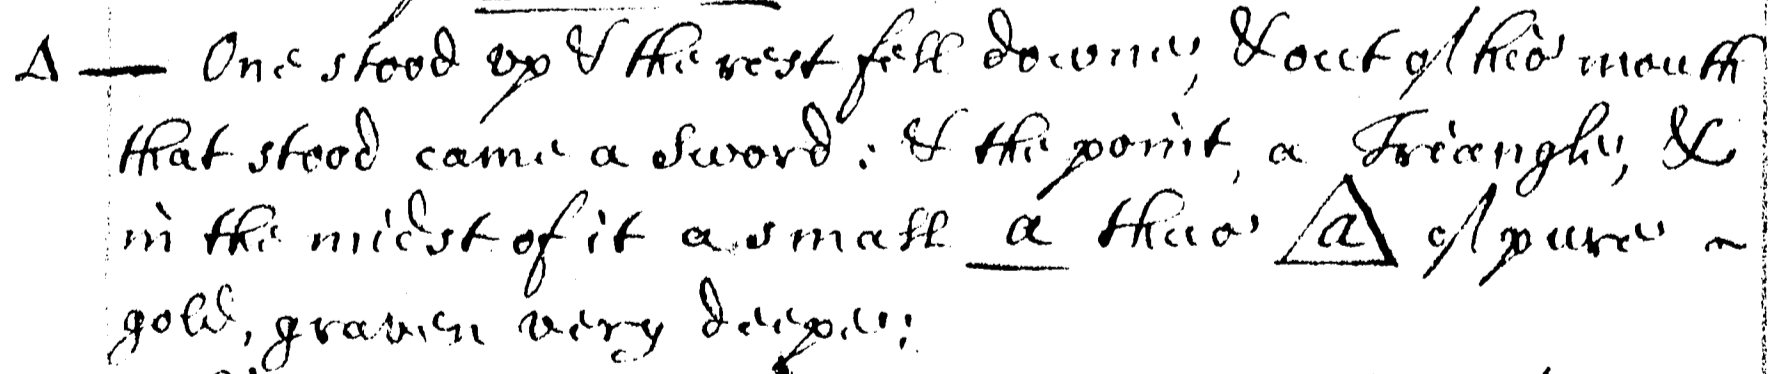 Δ — One stood vp & the rest fell downe, & out of his mouth
that stood came a Sword: & the point, a Triangle, &
in the midst of it a small a thus △a of pure ~
gold, graven very deepe: